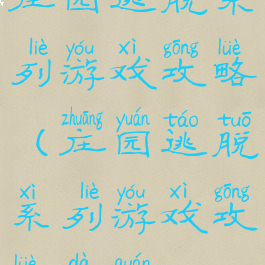 庄园逃脱系
liè yóu xì gōng lüè
列游戏攻略
zhuāng yuán táo tuō
(庄园逃脱
xì liè yóu xì gōng
系列游戏攻
lüè dà quán